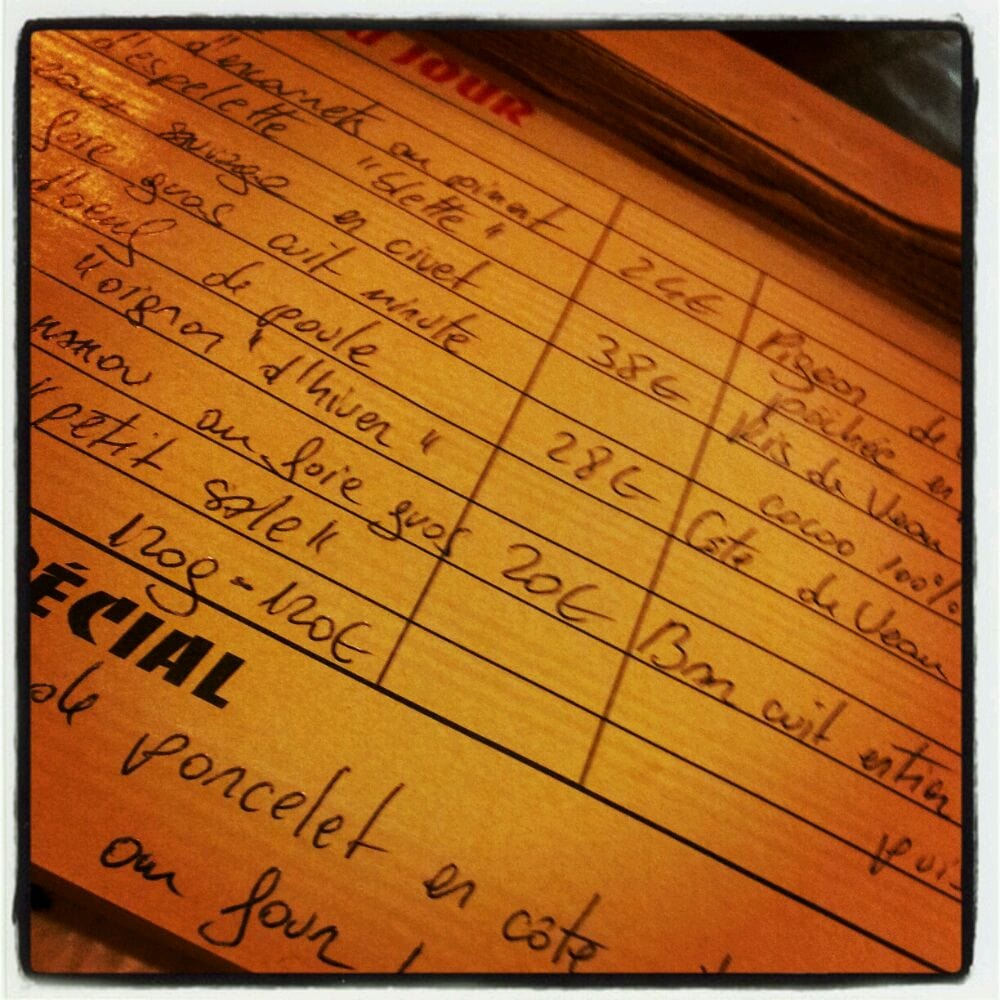 JOUR
d'encornets au piment
d'espelette "Slette" 24€
sauvage en civet 38€
foie gras cuit minute
d'oeuf de poule 28€
"oignon d'hiver"
au foie gras 20€
"petit sale"
120g - 120€
Pigeon de
pochée en
Ris de Veau
cocoa 100%
Côte de Veau
Bar cuit entier
ÉCIAL
porcelet en côte
au four